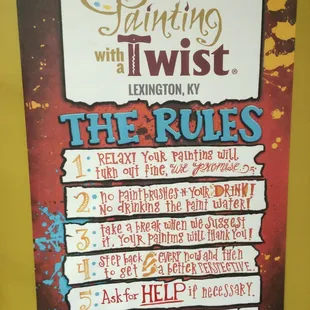 Painting
with a
Twist®
LEXINGTON, KY
THE RULES
1: RELAX! Your painting will
turn out fine, we promise
2: no paintbrushes in your DRINK!
No drinking the paint water!
3: take a break when we suggest
it. Your painting will thank you!
4: Step back every now and then
to get a better perspective.
5: Ask for HELP if necessary.